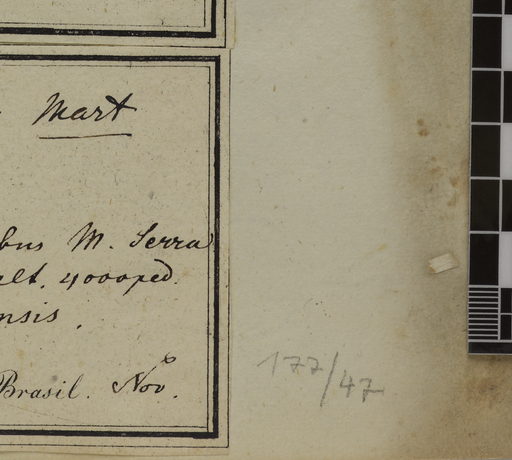 Mart
bus M. Serra
alt. 4000ped.
nsis.
Brasil. Nov.
177/47